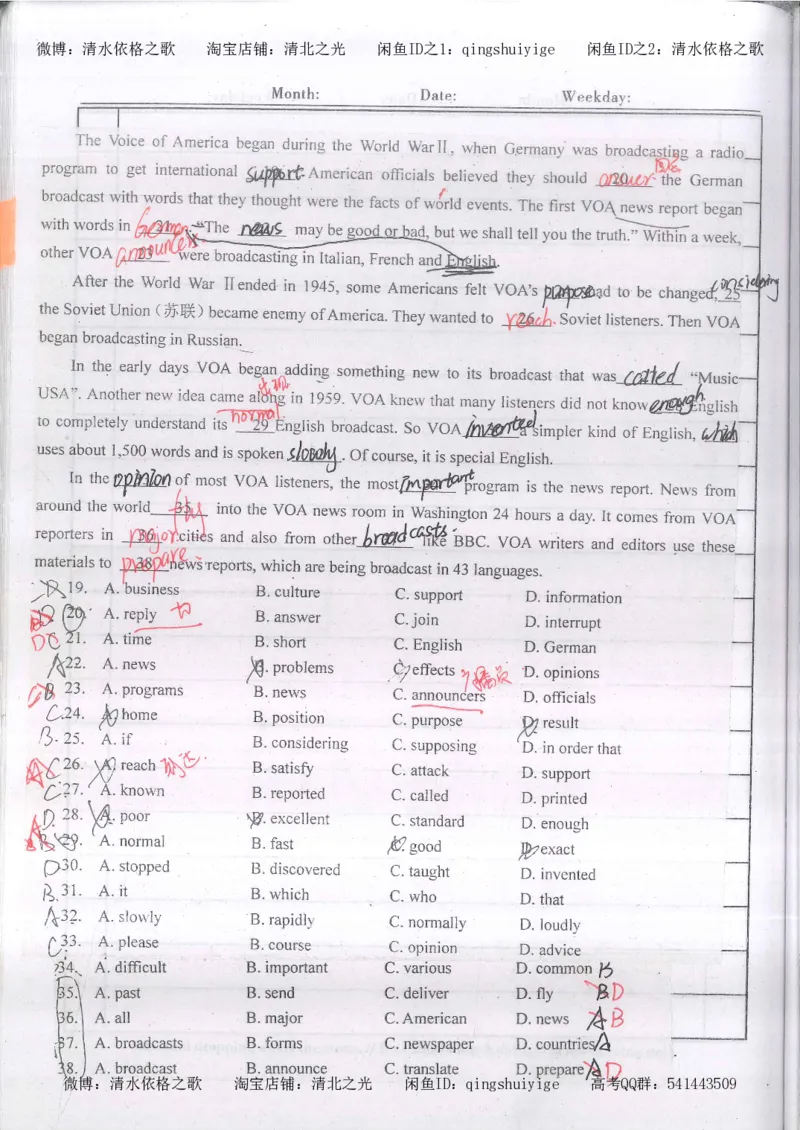 微博：清水依格之歌 淘宝店铺：清北之光 闲鱼ID之1：qingshuiyige 闲鱼ID之2：清水依格之歌
Month: Date: Weekday:
The Voice of America began during the World WarⅡ, when Germany was broadcasting a radio
program to get international support. American officials believed they should answer 20 the German
broadcast with words that they thought were the facts of world events. The first VOA news report began
with words in German. 21 “The news may be good or bad, but we shall tell you the truth.” Within a week,
other VOA announcers 23 were broadcasting in Italian, French and English.
After the World War Ⅱ ended in 1945, some Americans felt VOA’s purpose had to be changed, 25 considering
the Soviet Union（苏联）became enemy of America. They wanted to reach 26 Soviet listeners. Then VOA
began broadcasting in Russian.
In the early days VOA began adding something new to its broadcast that was called “Music
出现
USA”. Another new idea came along in 1959. VOA knew that many listeners did not know enough English
normal
to completely understand its 29 English broadcast. So VOA invented a simpler kind of English, which
uses about 1,500 words and is spoken slowly. Of course, it is special English.
In the opinion of most VOA listeners, the most important program is the news report. News from
around the world 35 fly into the VOA news room in Washington 24 hours a day. It comes from VOA
reporters in major 36 cities and also from other broadcasts like BBC. VOA writers and editors use these
materials to prepare 38 news reports, which are being broadcast in 43 languages.
19. A. business B. culture C. support D. information
20. A. reply B. answer C. join D. interrupt
D C 21. A. time B. short C. English D. German
A 22. A. news B. problems C. effects D. opinions
C B 23. A. programs B. news C. announcers 播员 D. officials
C. 24. A. home B. position C. purpose D. result
B. 25. A. if B. considering C. supposing D. in order that
A C 26. A. reach B. satisfy C. attack D. support
C 27. A. known B. reported C. called D. printed
D. 28. A. poor B. excellent C. standard D. enough
A 29. A. normal B. fast C. good D. exact
D 30. A. stopped B. discovered C. taught D. invented
B. 31. A. it B. which C. who D. that
A 32. A. slowly B. rapidly C. normally D. loudly
C 33. A. please B. course C. opinion D. advice
34. A. difficult B. important C. various D. common B
35. A. past B. send C. deliver D. fly B D
36. A. all B. major C. American D. news A B
37. A. broadcasts B. forms C. newspaper D. countries A
38. A. broadcast B. announce C. translate D. prepare A D
微博：清水依格之歌 淘宝店铺：清北之光 闲鱼ID：qingshuiyige 高考QQ群：541443509